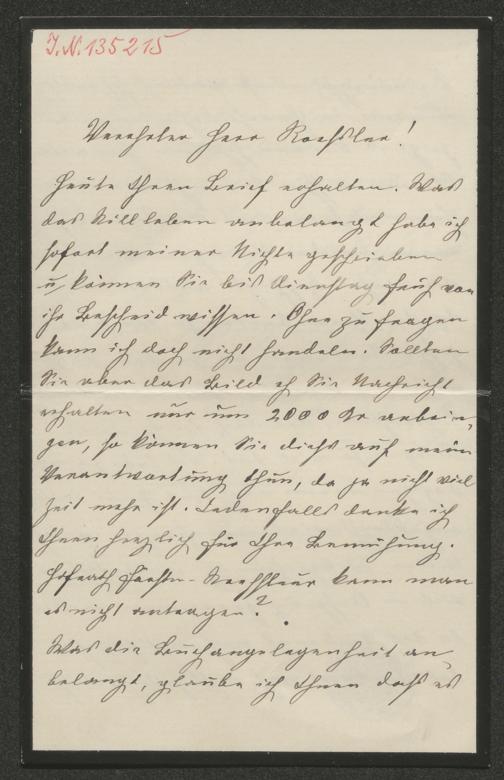 J.N. 135215
Verehrter Herr Roessler!
Heute Ihren Brief erhalten. Was
das Stilleben anbelangt habe ich
sofort meiner Nichte geschrieben
u können Sie bis Dienstag früh von
ihr Bescheid wissen. Ohne zu fragen
kann ich doch nicht handeln. Sollten
Sie aber das Bild eh Sie Nachricht
erhalten nur um 2000 Kr anbrin-
gen, so können Sie dieß auf meine
Verantwortung thun, da ja nicht viel
Zeit mehr ist. Jedenfalls danke ich
Ihnen herzlich für Ihre Bemühung.
Hofrath kann man
es nicht antragen?.
Was die Buchangelegenheit an-
belangt, glaube ich Ihnen daß es